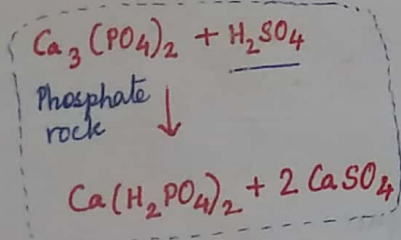 Ca₃(PO₄)₂ + H₂SO₄
Phosphate
rock
Ca(H₂PO₄)₂ + 2 CaSO₄